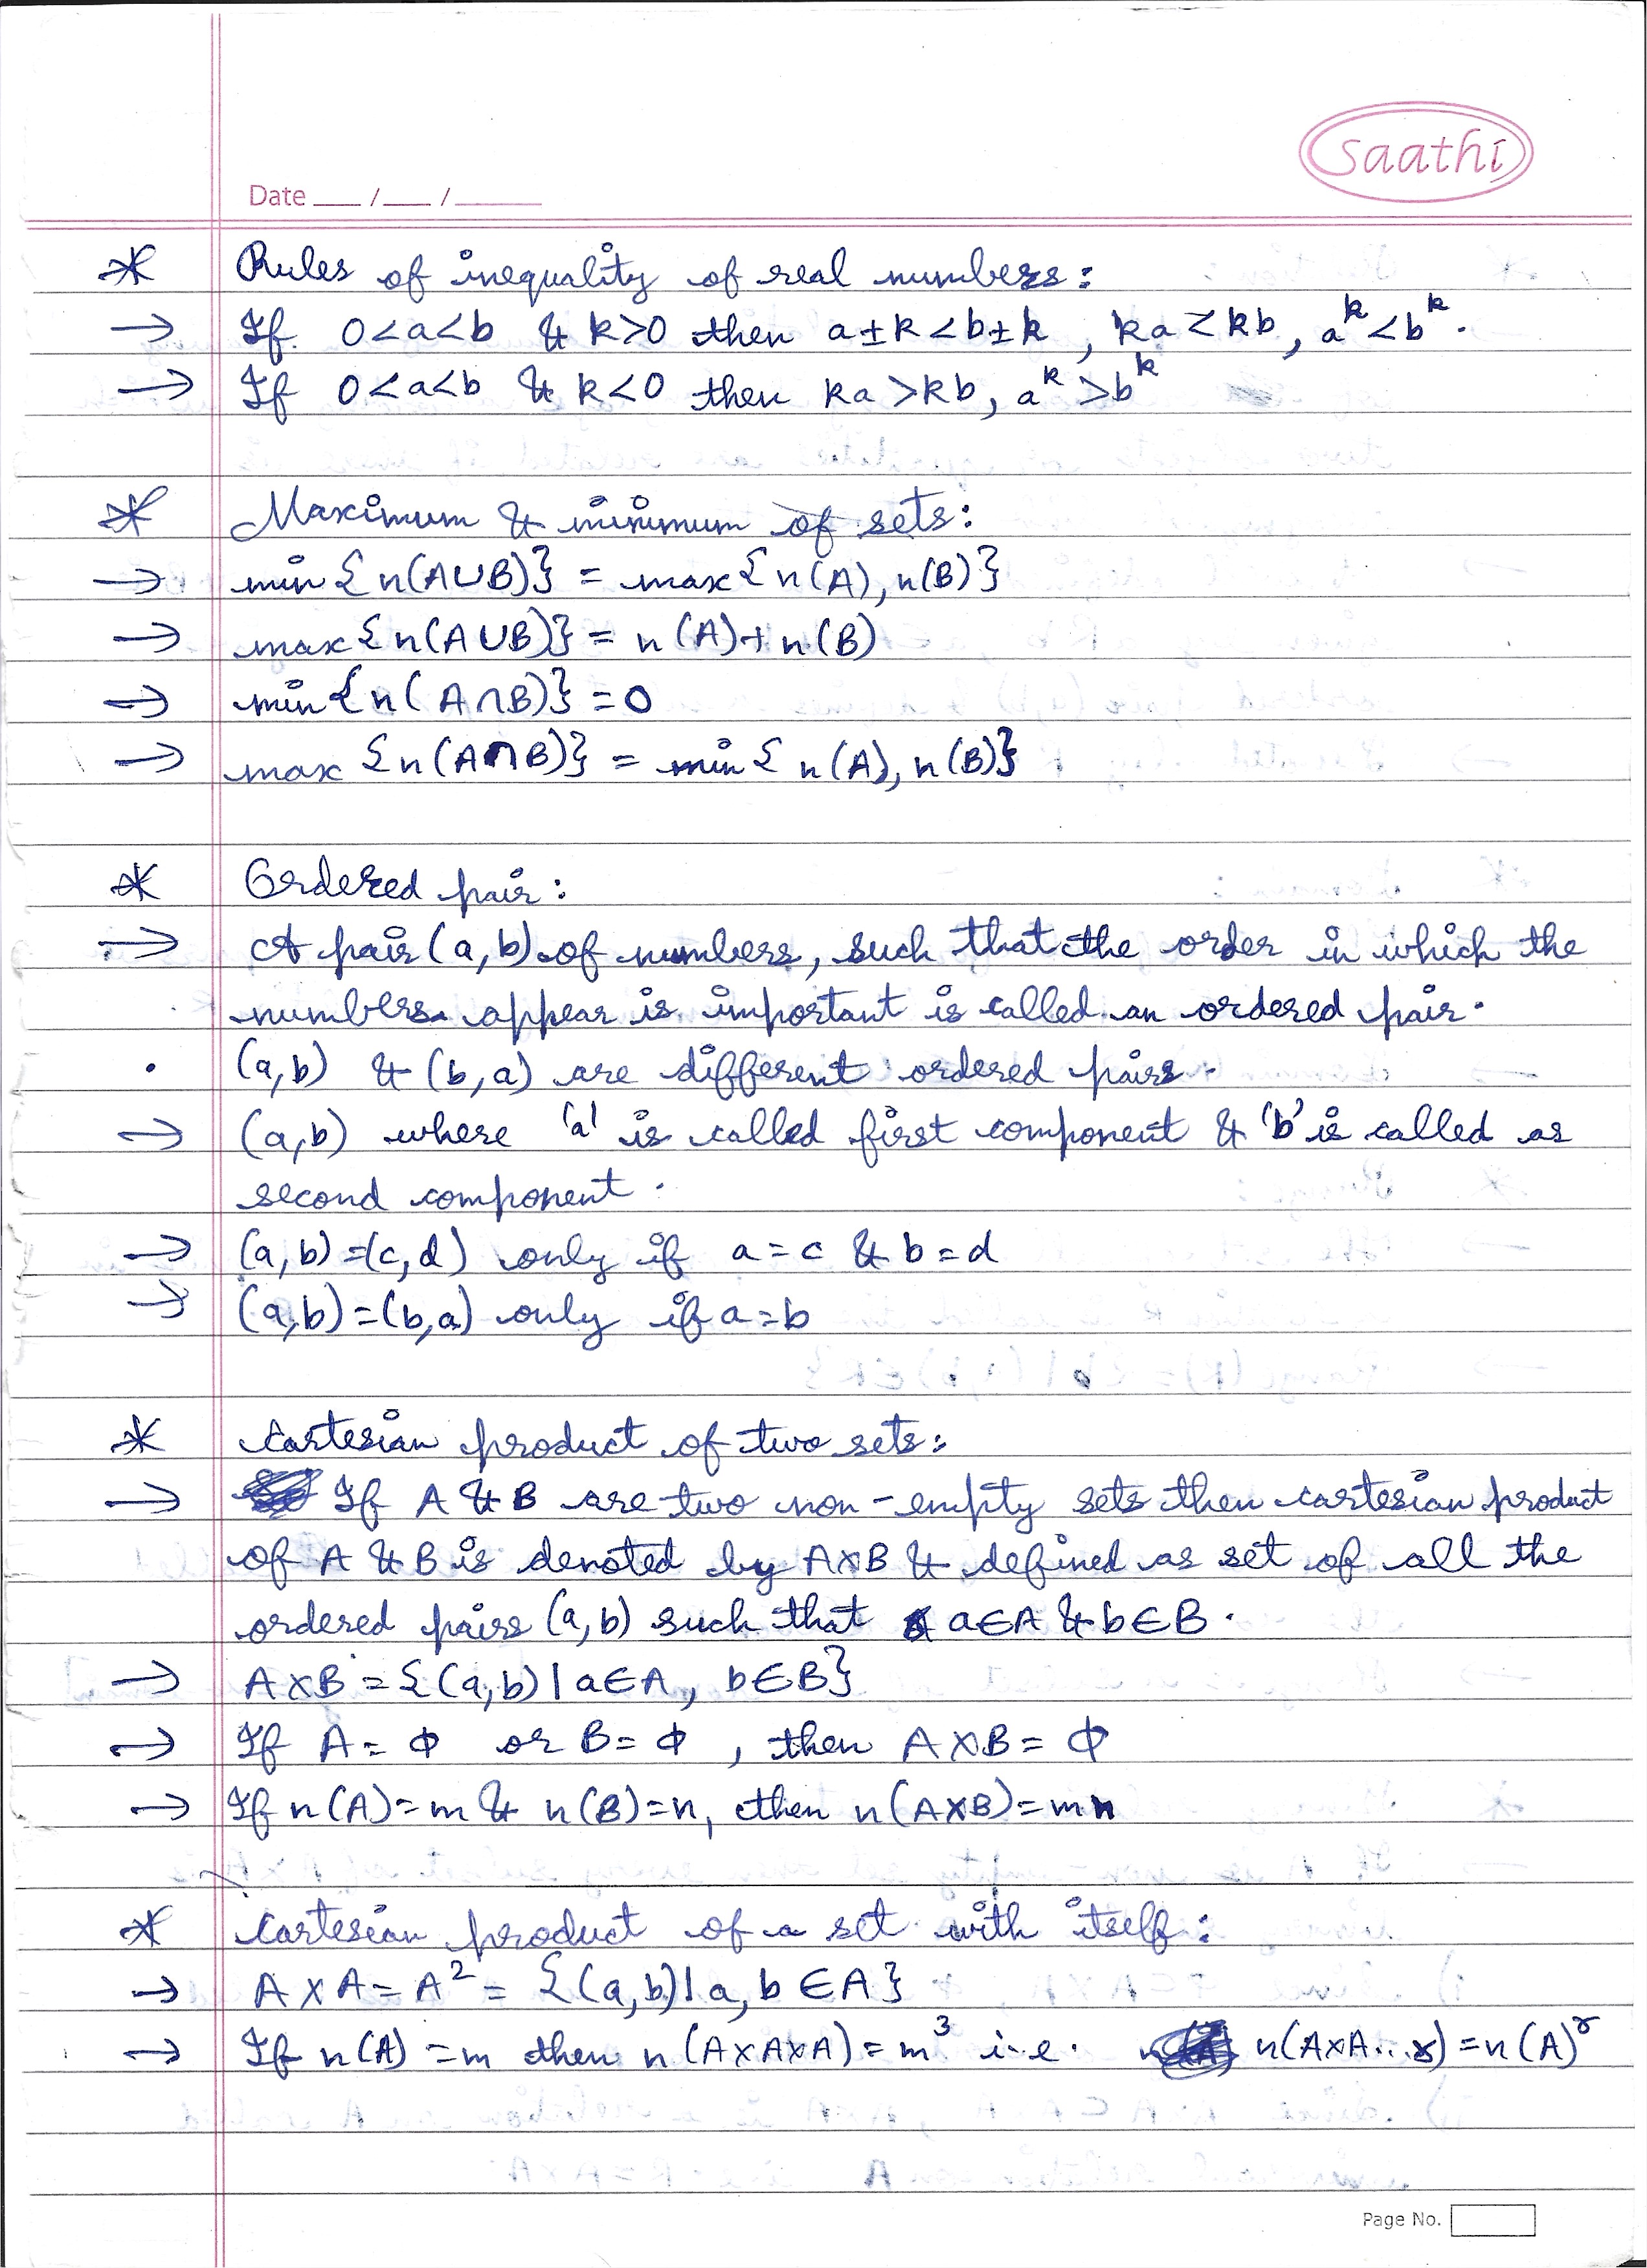 saathi
Date ___ / ___ / ______
* Rules of inequality of real numbers:
→ If 0<a<b & k>0 then a±k<b±k, ka<kb, a^k<b^k.
→ If 0<a<b & k<0 then ka>kb, a^k>b^k
* Maximum & minimum of sets:
→ min{n(A∪B)} = max{n(A), n(B)}
→ max{n(A∪B)} = n(A)+n(B)
→ min{n(A∩B)} = 0
→ max {n(A∩B)} = min{n(A), n(B)}
* Ordered pair:
→ A pair (a, b) of numbers, such that the order in which the
numbers appear is important is called an ordered pair.
• (a,b) & (b,a) are different ordered pairs.
→ (a,b) where 'a' is called first component & 'b' is called as
second component.
→ (a, b)=(c,d) only if a=c & b=d
→ (a,b)=(b,a) only if a=b
* Cartesian product of two sets:
→ If A & B are two non-empty sets then cartesian product
of A & B is denoted by A×B & defined as set of all the
ordered pairs (a, b) such that a∈A & b∈B.
→ A×B = {(a,b) | a∈A, b∈B}
→ If A= ϕ or B= ϕ, then A×B= ϕ
→ If n(A)=m & n(B)=n, then n(A×B)=mn
* Cartesian product of a set with itself:
→ A×A=A² = {(a,b)|a, b ∈A}
→ If n(A)=m then n(A×A×A)=m³ i.e. n(A×A...r)=n(A)^r
Page No.